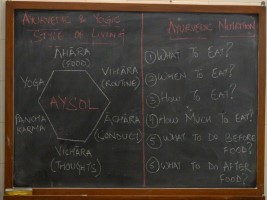 AYURVEDIC & YOGIC
STYLE OF LIVING
ĀHĀRA
(FOOD)
VIHĀRA
(ROUTINE)
ĀCHĀRA
(CONDUCT)
VICHĀRA
(THOUGHTS)
PANCHA
KARMA
YOGA
AYSOL
AYURVEDIC NUTRITION
1 WHAT TO EAT?
2 WHEN TO EAT?
3 HOW TO EAT?
4 HOW MUCH TO EAT?
5 WHAT TO DO BEFORE
FOOD?
6 WHAT TO DO AFTER
FOOD?